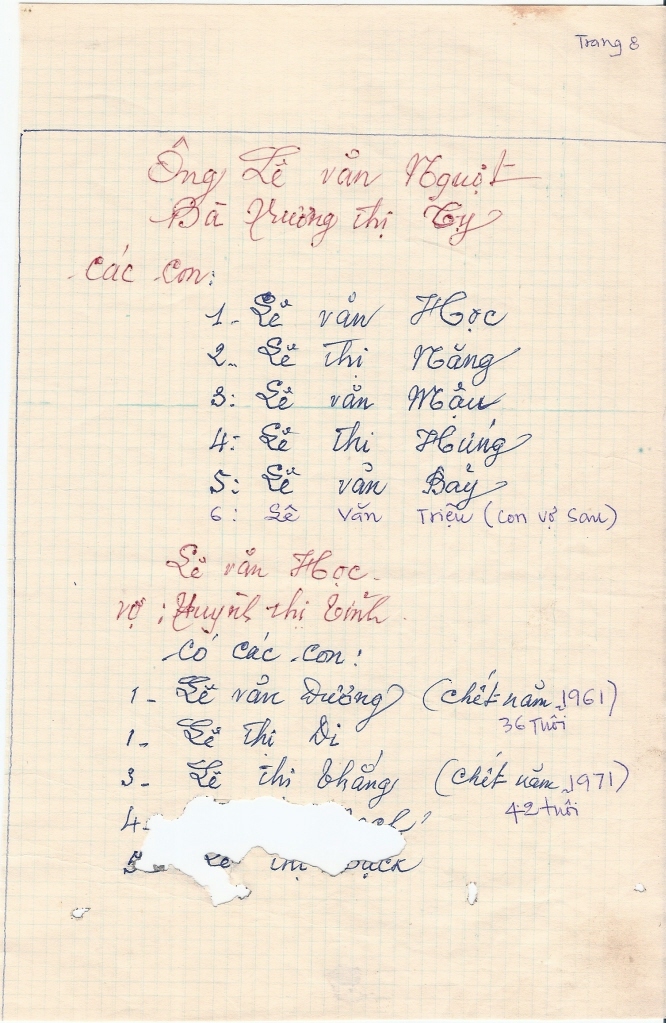 Trang 8
Ông Lê văn Nguột
Bà Trương thị Tỵ
các con:
1- Lê văn Học
2- Lê thị Năng
3: Lê văn Mậu
4: Lê thị Húng
5: Lê văn Bảy
6: Lê Văn Triệu (con vợ sau)
Lê văn Học
vợ: Huỳnh thị Tỉnh
có các con:
1- Lê văn Dương (chết năm 1961)
36 tuổi
1- Lê thị Di
3- Lê thị Thắng (chết năm 1971)
42 tuổi
4-
5- Lê thị